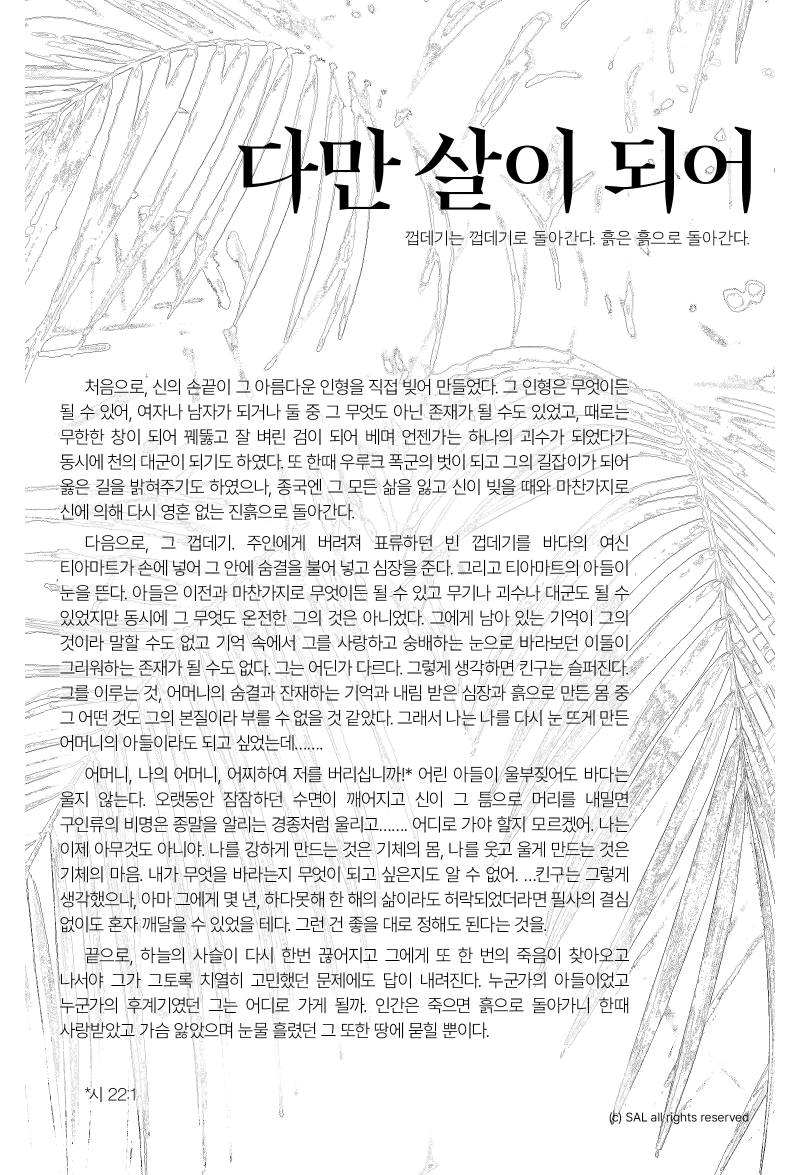 다만 살이 되어
껍데기는 껍데기로 돌아간다. 흙은 흙으로 돌아간다.
처음으로, 신의 손끝이 그 아름다운 인형을 직접 빚어 만들었다. 그 인형은 무엇이든
될 수 있어, 여자나 남자가 되거나 둘 중 그 무엇도 아닌 존재가 될 수도 있었고, 때로는
무한한 창이 되어 꿰뚫고 잘 벼린 검이 되어 베며 언젠가는 하나의 괴수가 되었다가
동시에 천의 대군이 되기도 하였다. 또 한때 우루크 폭군의 벗이 되고 그의 길잡이가 되어
옳은 길을 밝혀주기도 하였으나, 종국엔 그 모든 삶을 잃고 신이 빚을 때와 마찬가지로
신에 의해 다시 영혼 없는 진흙으로 돌아간다.
다음으로, 그 껍데기. 주인에게 버려져 표류하던 빈 껍데기를 바다의 여신
티아마트가 손에 넣어 그 안에 숨결을 불어 넣고 심장을 준다. 그리고 티아마트의 아들이
눈을 뜬다. 아들은 이전과 마찬가지로 무엇이든 될 수 있고 무기나 괴수나 대군도 될 수
있었지만 동시에 그 무엇도 온전한 그의 것은 아니었다. 그에게 남아 있는 기억이 그의
것이라 말할 수도 없고 기억 속에서 그를 사랑하고 숭배하는 눈으로 바라보던 이들이
그리워하는 존재가 될 수도 없다. 그는 어딘가 다르다. 그렇게 생각하면 킨구는 슬퍼진다.
그를 이루는 것, 어머니의 숨결과 잔재하는 기억과 내림 받은 심장과 흙으로 만든 몸 중
그 어떤 것도 그의 본질이라 부를 수 없을 것 같았다. 그래서 나는 나를 다시 눈 뜨게 만든
어머니의 아들이라도 되고 싶었는데…….
어머니, 나의 어머니, 어찌하여 저를 버리십니까!* 어린 아들이 울부짖어도 바다는
울지 않는다. 오랫동안 잠잠하던 수면이 깨어지고 신이 그 틈으로 머리를 내밀면
구인류의 비명은 종말을 알리는 경종처럼 울리고……. 어디로 가야 할지 모르겠어. 나는
이제 아무것도 아니야. 나를 강하게 만드는 것은 기체의 몸, 나를 웃고 울게 만드는 것은
기체의 마음. 내가 무엇을 바라는지 무엇이 되고 싶은지도 알 수 없어. …킨구는 그렇게
생각했으나, 아마 그에게 몇 년, 하다못해 한 해의 삶이라도 허락되었더라면 필사의 결심
없이도 혼자 깨달을 수 있었을 테다. 그런 건 좋을 대로 정해도 된다는 것을.
끝으로, 하늘의 사슬이 다시 한번 끊어지고 그에게 또 한 번의 죽음이 찾아오고
나서야 그가 그토록 치열히 고민했던 문제에도 답이 내려진다. 누군가의 아들이었고
누군가의 후계기였던 그는 어디로 가게 될까. 인간은 죽으면 흙으로 돌아가니 한때
사랑받았고 가슴 앓았으며 눈물 흘렸던 그 또한 땅에 묻힐 뿐이다.
*시 22:1
(c) SAL all rights reserved